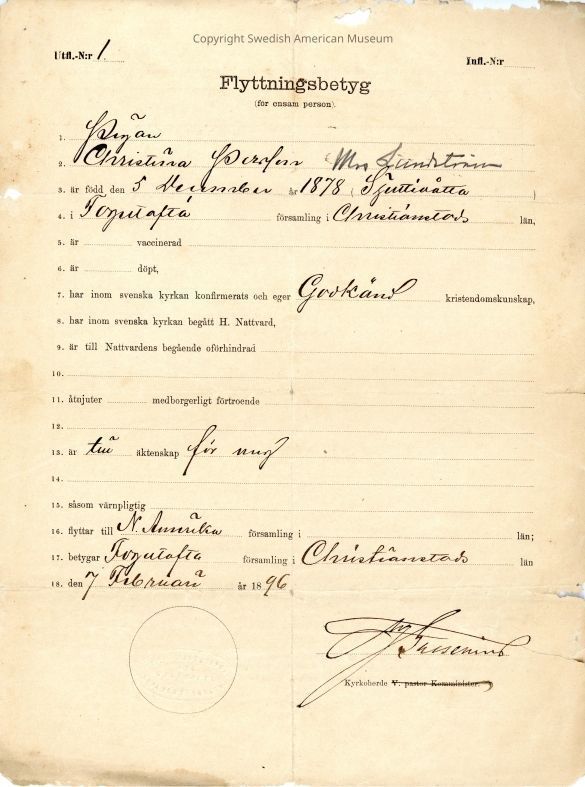 Copyright Swedish American Museum
Utfl.-N:r 1. Infl.-N:r
Flyttningsbetyg
(för ensam person).
1. Pigan
2. Christina Persson Mrs Lundström
3. är född den 5 December år 1878 (
4. i församling i Christianstads län,
5. är vaccinerad
6. är döpt,
7. har inom svenska kyrkan konfirmerats och eger Godkänd kristendomskunskap,
8. har inom svenska kyrkan begått H. Nattvard,
9. är till Nattvardens begående oförhindrad
10.
11. åtnjuter medborgerligt förtroende
12.
13. är till äktenskap för ung
14.
15. såsom värnpligtig
16. flyttar till N. Amerika församling i län;
17. betygar församling i Christianstads län
18. den 7 Februari år 1896
Kyrkoherde V. pastor Komminister.